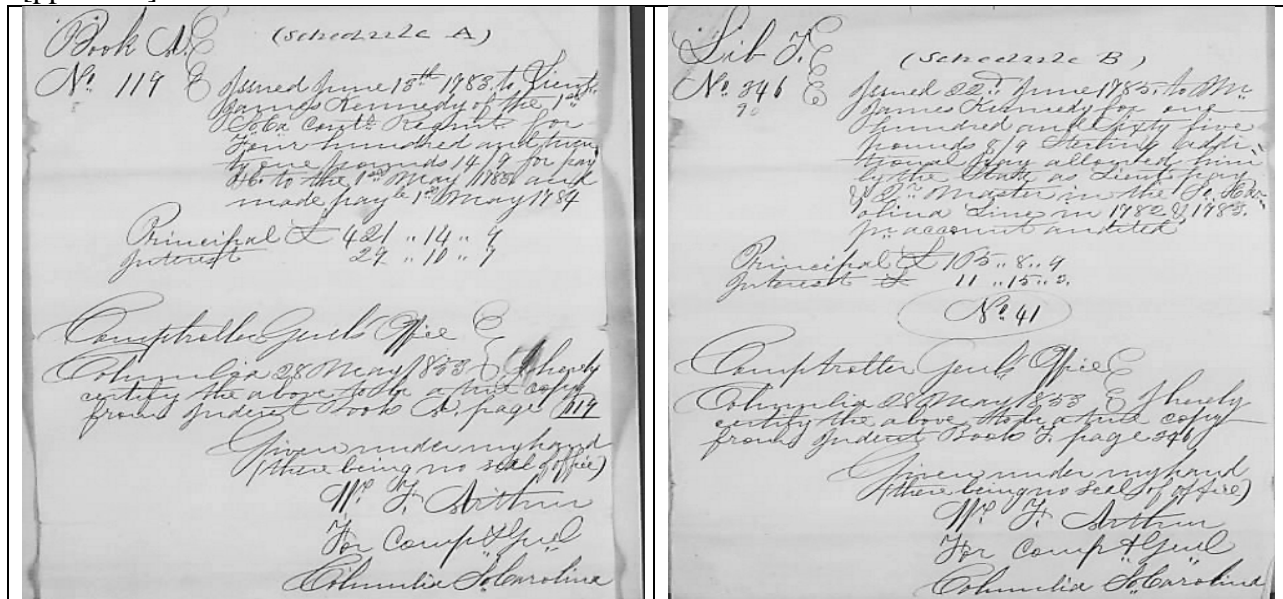 Book A.
(Schedule A)
No. 119
Issued June 15th 1783. to Lieut.
James Kennedy of the 1st
So Ca Contl. Regmt. for
Four hundred and twen
ty one pounds 14/9 for pay
&c. to the 1st May 1783 and
made payle 1st May 1784
Principal £ 421 .. 14 .. 9
Interest 29 .. 10 .. 7
Comptroller Genls Office
Columbia 28 May 1853 I hereby
certify the above to be a true copy
from Indent Book A. page 119
Given under my hand
(there being no seal of office)
Wm. F. Arthur
For Compt Genl
Columbia So Carolina
Lib F.
(Schedule B)
No. 346
90
Issued 22d. June 1785. to Mr
James Kennedy for one
hundred and Sixty five
pounds 8/9 Sterling addi
tional pay allowed him
by the State as Lieut pay
& Qr. Master in the So. Car
olina Line in 1782 & 1783.
pr. account audited
Principal £ 165 .. 8 .. 9
Interest £ 11 .. 15 ..
No. 41
Comptroller Genls Office
Columbia 28 May 1853 I hereby
certify the above to be a true copy
from Indent Book F. page 346
Given under my hand
(there being no seal of office)
Wm. F. Arthur
For Compt Genl
Columbia So Carolina